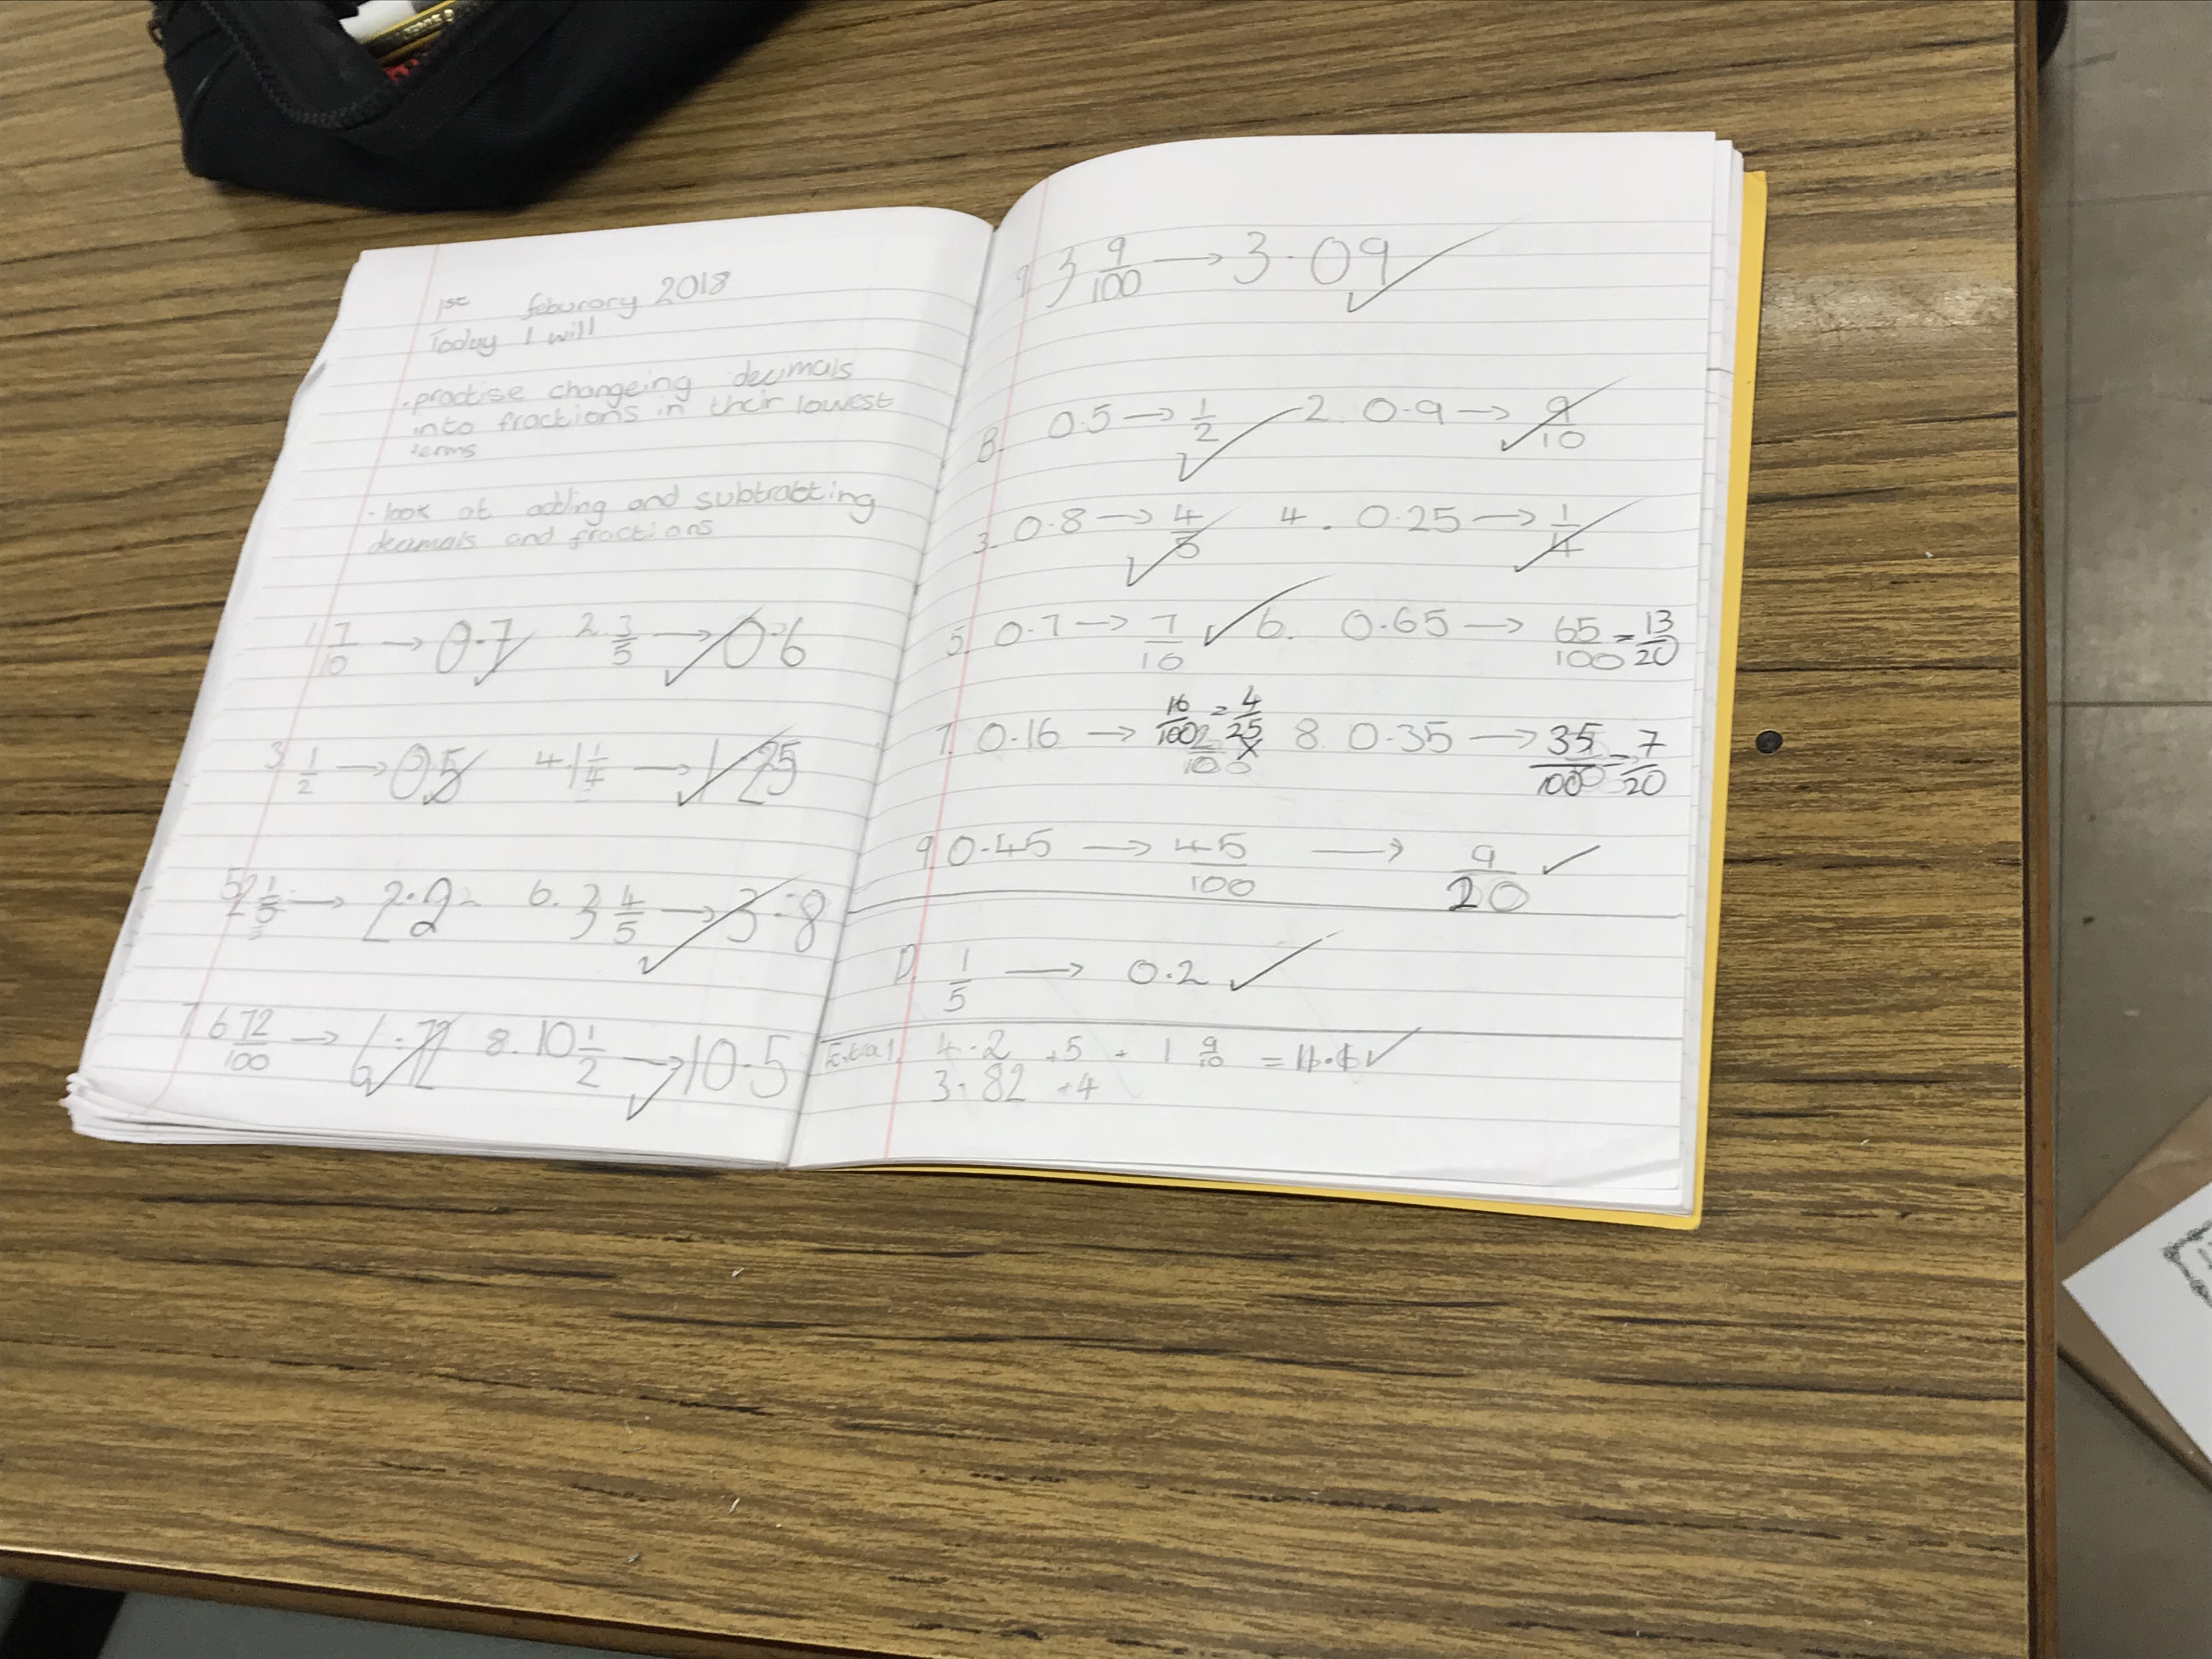 1st feburary 2018
Today I will
· practise changeing decimals
into fractions in their lowest
terms
· look at adding and subtracting
decimals and fractions
1. 7/10 → 0.7 ✓ 2. 3/5 → 0.6 ✓
3. 1/2 → 0.5 ✓ 4. 1 1/4 → 1.25 ✓
5. 2 1/5 → 2.2 6. 3 4/5 → 3.8 ✓
7. 6 72/100 → 6.72 ✓ 8. 10 1/2 → 10.5 ✓
9. 3 9/100 → 3.09 ✓
B. 0.5 → 1/2 ✓ 2. 0.9 → 9/10 ✓
3. 0.8 → 4/5 ✓ 4. 0.25 → 1/4 ✓
5. 0.7 → 7/10 ✓ 6. 0.65 → 65/100 = 13/20
7. 0.16 → 16/100 = 4/25 8. 0.35 → 35/100 = 7/20
9. 0.45 → 45/100 → 9/20 ✓
D. 1/5 → 0.2 ✓
4.2 +5 + 1 9/10 =
3.82 +4